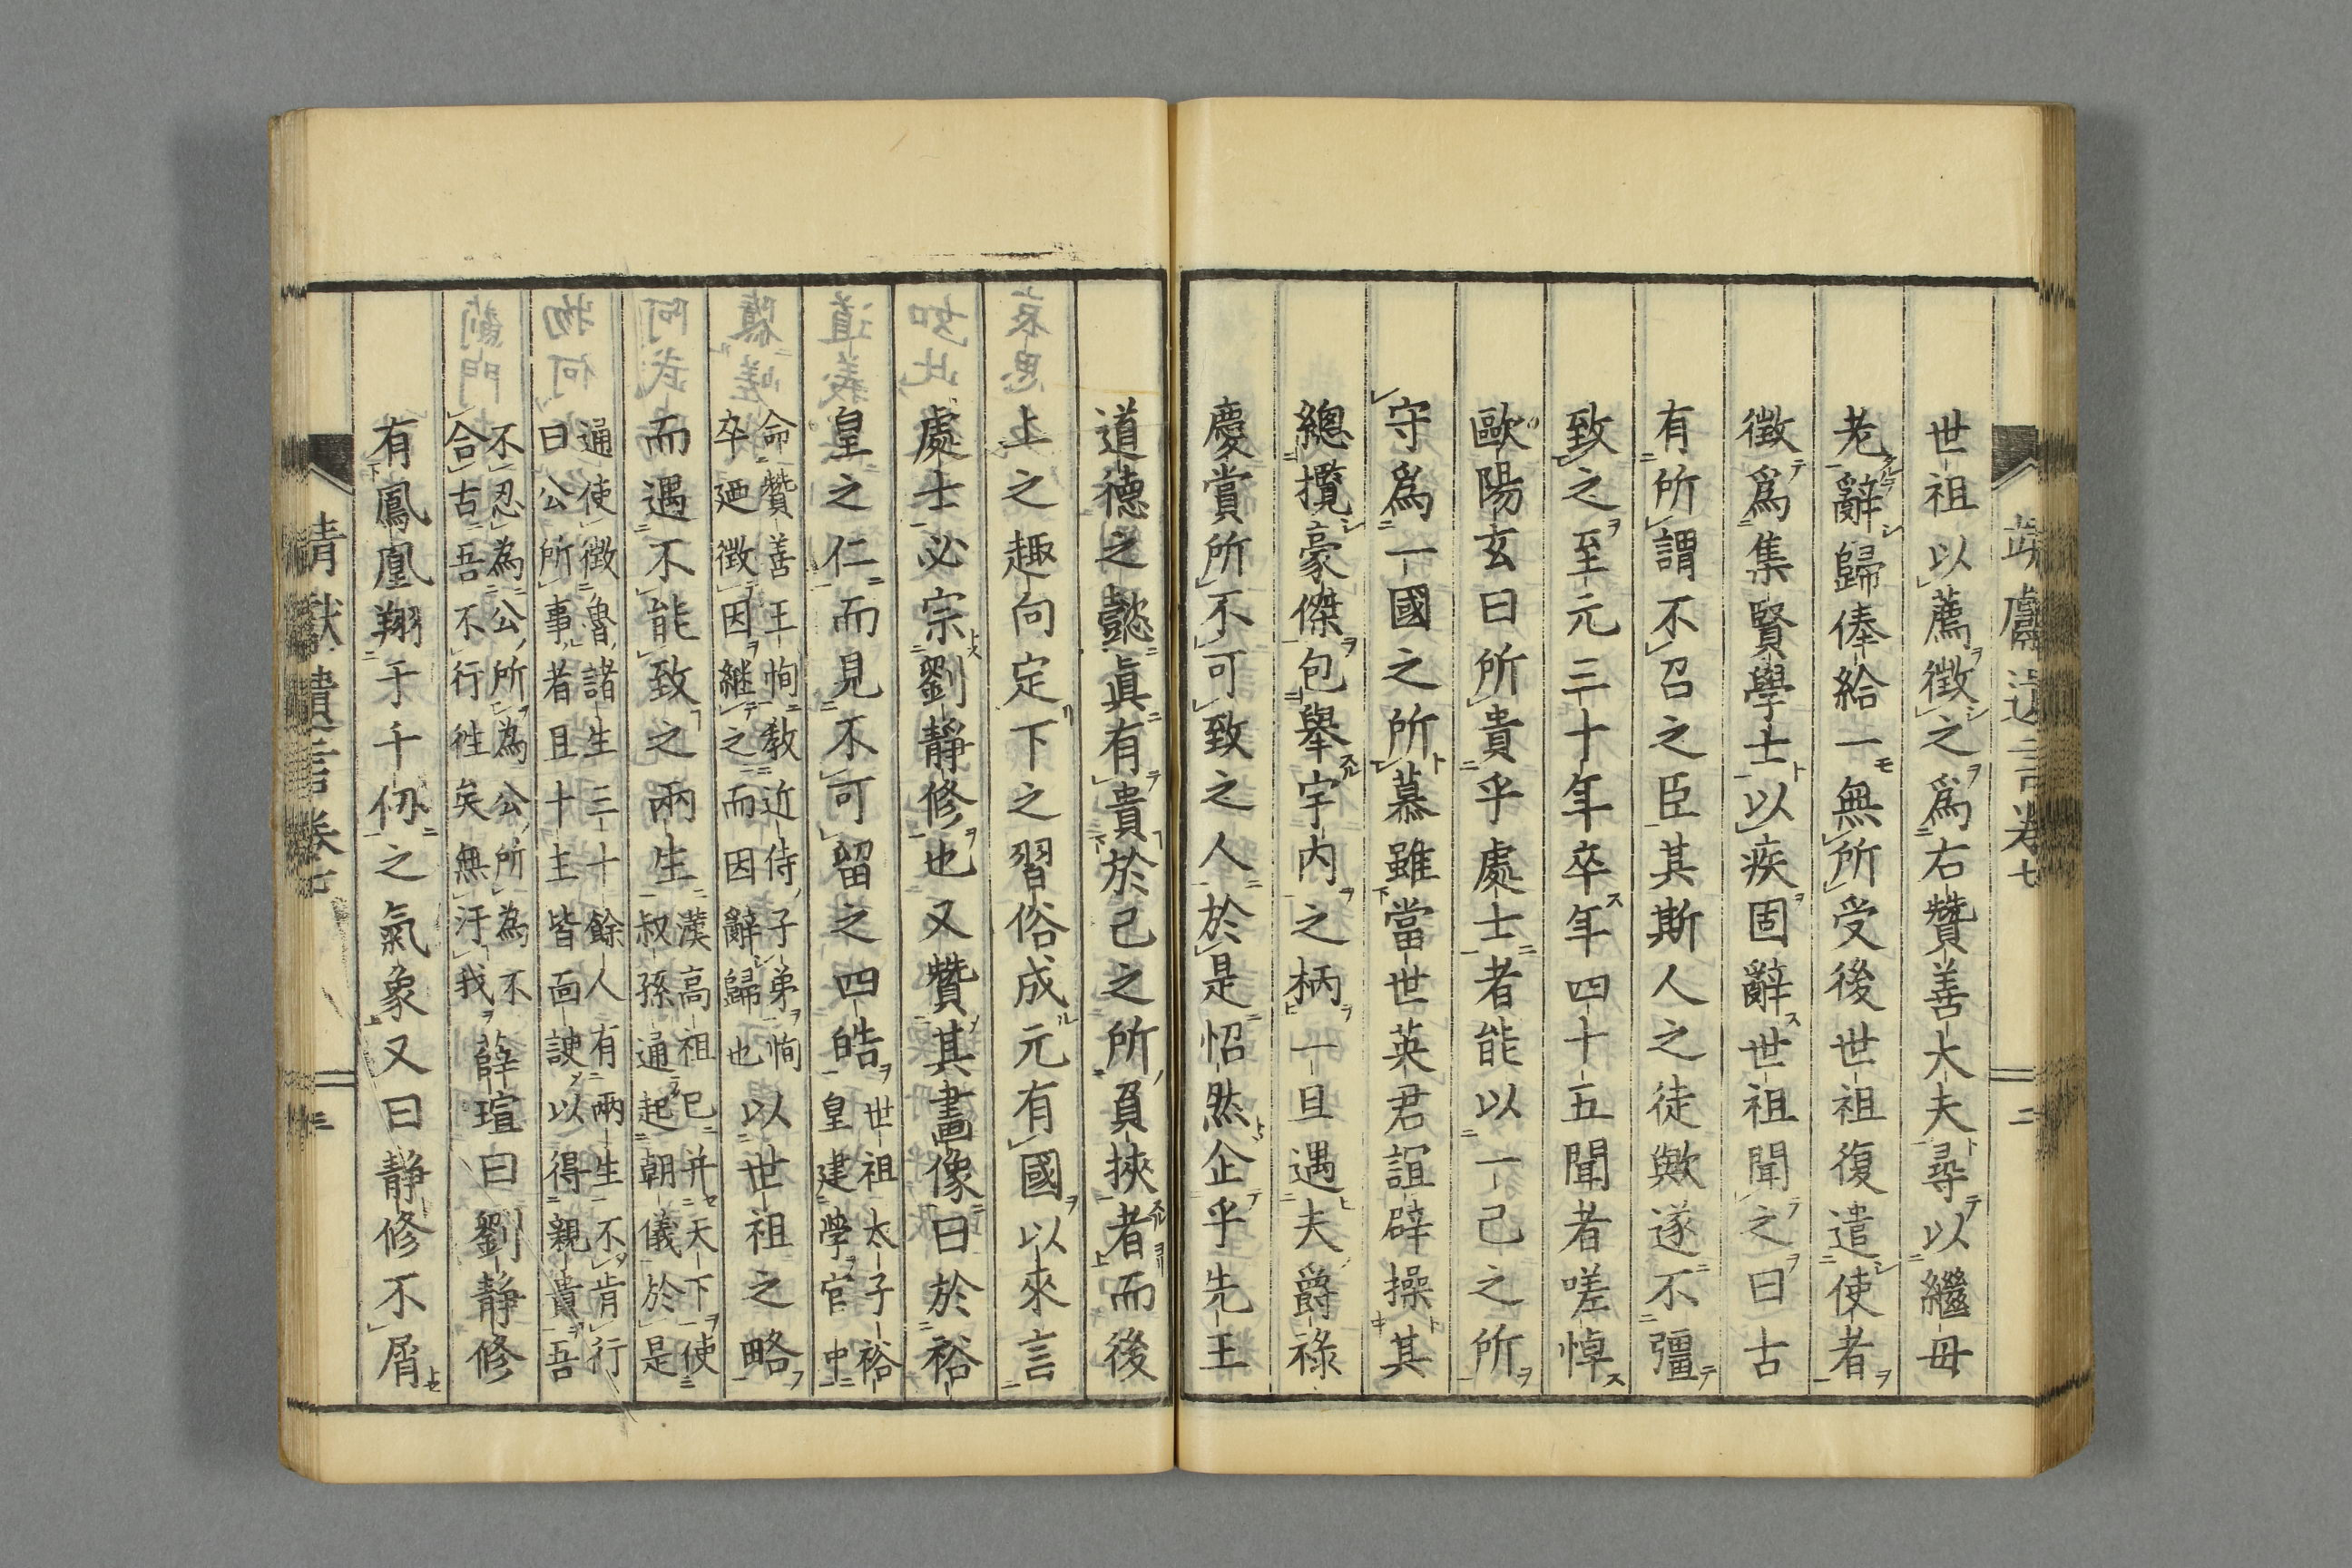 靖獻遺言卷七 二
世祖以薦徴之爲右贊善大夫尋以繼母
老辭歸俸給一無所受後世祖復遣使者
徴爲集賢學士以疾固辭世祖聞之曰古
有所謂不召之臣其斯人之徒歟遂不彊
致之至元三十年卒年四十五聞者嗟悼
歐陽玄曰所貴乎處士者能以一己之所
守爲一國之所慕雖當世英君誼辟操其
總攬豪傑包舉宇内之柄一旦遇夫爵祿
慶賞所不可致之人於是怊然企乎先王
道德之懿眞有貴於己之所負挾者而後
上之趣向定下之習俗成元有國以來言
處士必宗劉靜修也又贊其畫像曰於裕
皇之仁而見不可留之四皓
世祖太子裕
皇建学官中
命贊善王恂教近侍子弟恂
卒廼徴因継之而因辭歸也
以世祖之略
而遇不能致之兩生
漢高祖已并天下使
叔孫通起朝儀於是
通使徴魯諸生三十餘人有兩生不肯行
曰公所事者且十主皆面諛以得親貴吾
不忍為公所為公所為不
合古吾不行徃矣無汙我
薛瑄曰劉靜修
有鳳凰翔于千仭之氣象又曰靜修不屑
靖獻遺言卷七 三